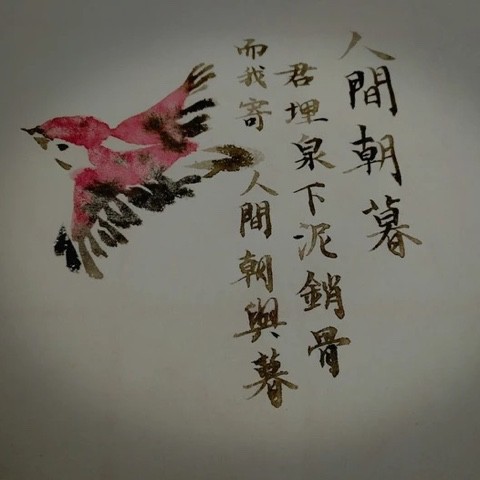 人間朝暮
君埋泉下泥銷骨
而我寄 人間朝與暮